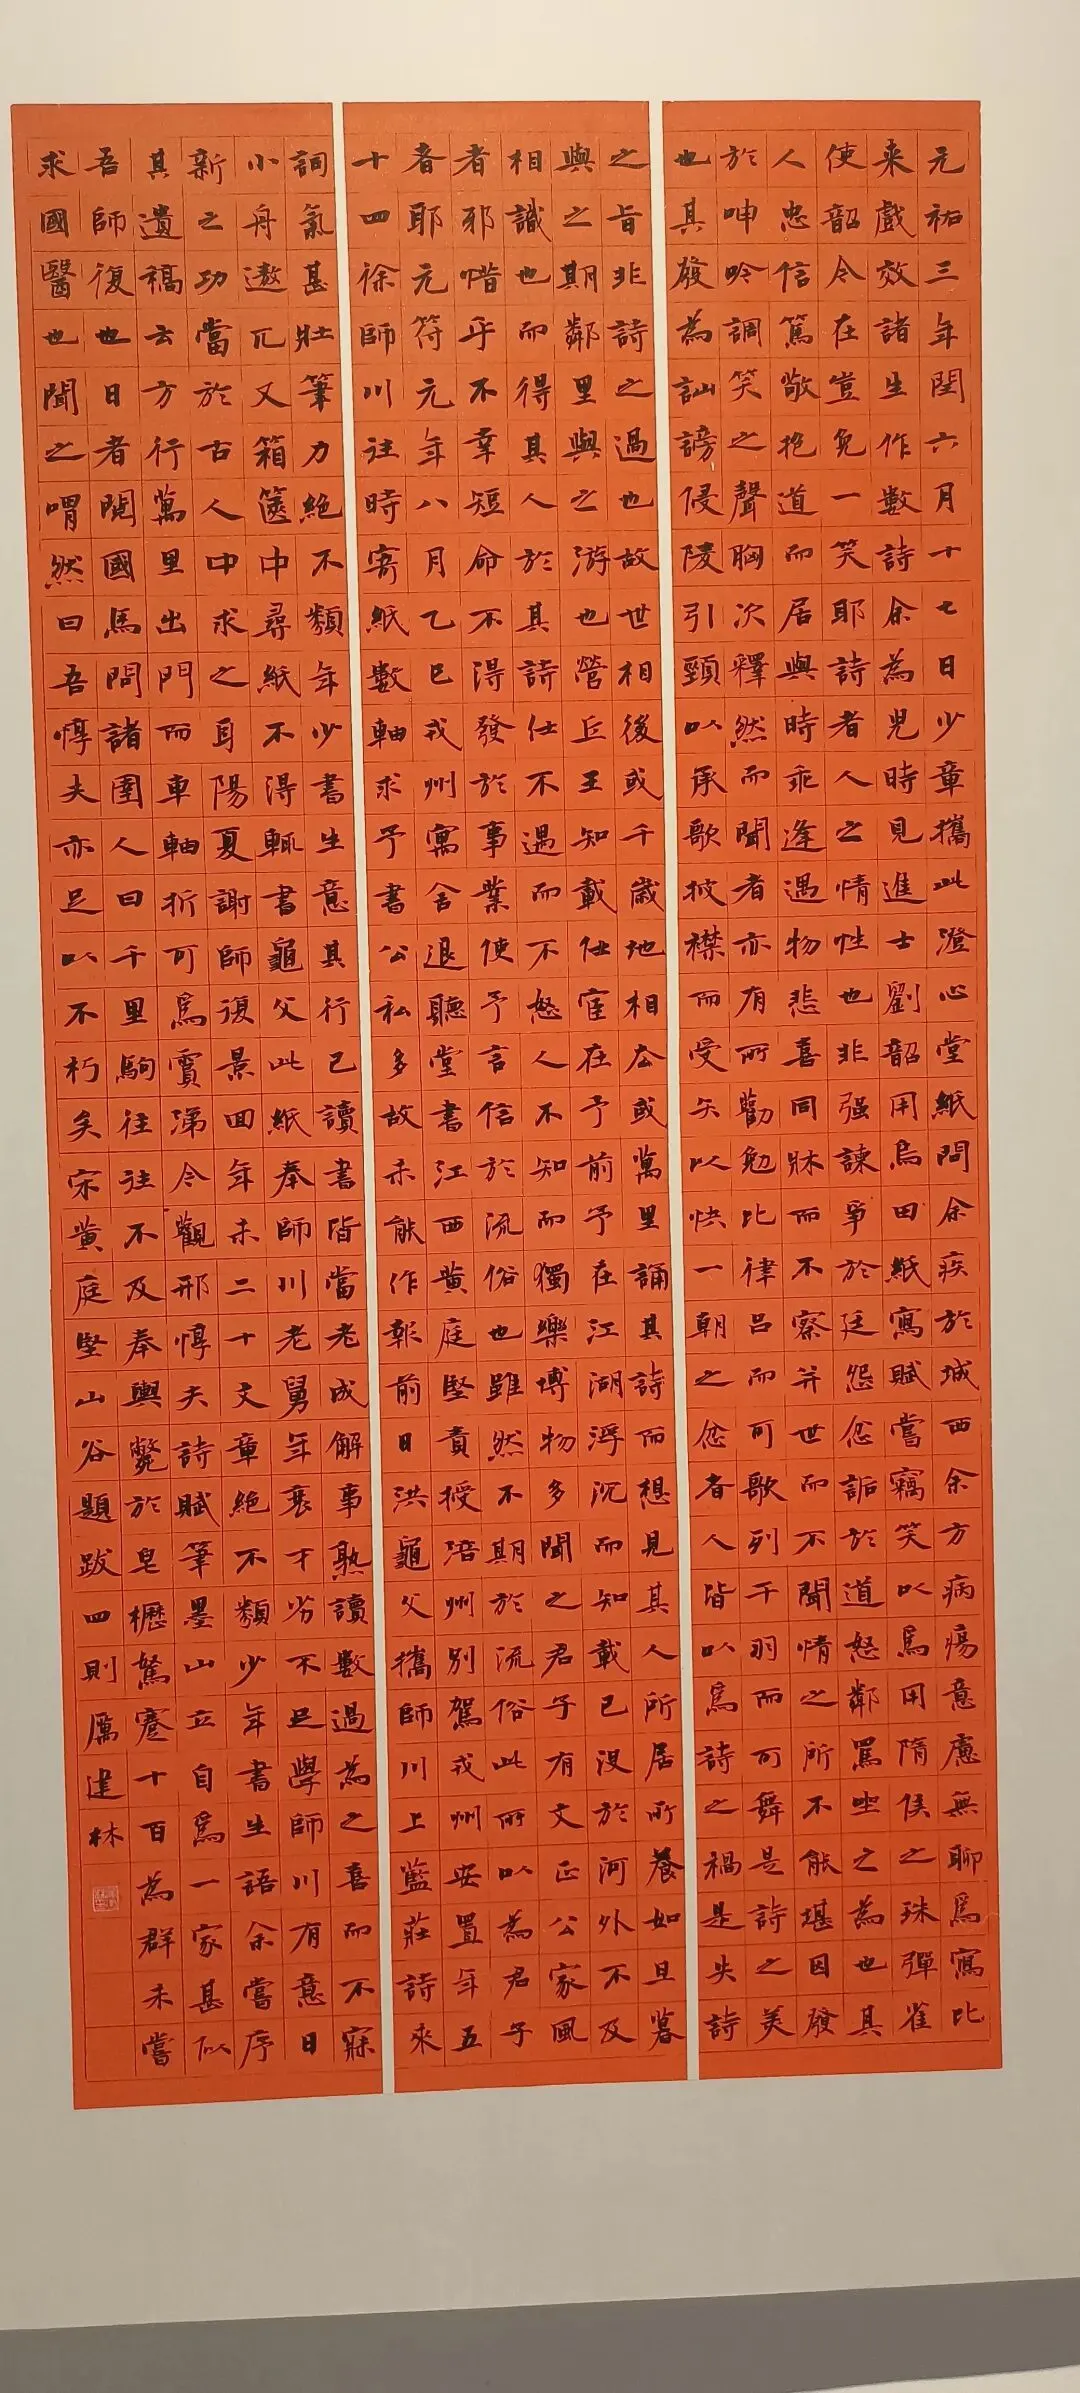 元祐三年閏六月十七日少章攜此澄心堂紙問余疾於城西余方病瘍意慮無聊為寫比
来戲效諸生作數詩余為兒時見進士劉韶用烏田紙寫賦嘗竊笑以為用隋侯之珠彈雀
使韶令在豈免一笑耶詩者人之情性也非强諫爭於廷怨忿詬於道怒鄰罵坐之為也其
人忠信篤敬抱道而居與時乖逢遇物悲喜同牀而不察并世而不聞情之所不能堪因發
於呻吟調笑之聲胸次釋然而聞者亦有所勸勉比律呂而可歌列干羽而可舞是詩之美
也其發為訕謗侵陵引頸以承歌披襟而受矢以快一朝之忿者人皆以為詩之禍是失詩
之旨非詩之過也故世相後或千歲地相去或萬里誦其詩而想見其人所居所養如旦暮
與之期鄰里與之游也營丘王知載仕宦在予前予在江湖浮沉而知載已没於河外不及
相識也而得其人於其詩仕不遇而不怒人不知而獨樂博物多聞之君子有文正公家風
者邪惜乎不幸短命不得發於事業使予言信於流俗也雖然不期於流俗此所以為君子
者耶元符元年八月乙巳戎州寓舍退聽堂書江西黄庭堅責授涪州别駕戎州安置年五
十四徐師川往時寄紙數軸求予書公私多故未能作報前日洪龜父攜師川上藍莊詩来
詞氣甚壯筆力絶不類年少書生意其行已讀書皆當老成解事熟讀數過為之喜而不寐
小舟遨兀又箱篋中尋紙不得輒書龜父此紙奉師川老舅年衰才劣不足學師川有意日
新之功當於古人中求之耳陽夏謝師復景回年未二十文章絶不類少年書生語余嘗序
其遺稿云方行萬里出門而車軸折可為賈涕今觀邢惇夫詩賦筆墨山立自為一家甚似
吾師復也日者閱國馬問諸圉人曰千里駒往往不及奉輿斃於皂櫪駑蹇十百為群未嘗
求國醫也聞之喟然曰吾惇夫亦足以不朽矣宋黄庭堅山谷題跋四則厲建林